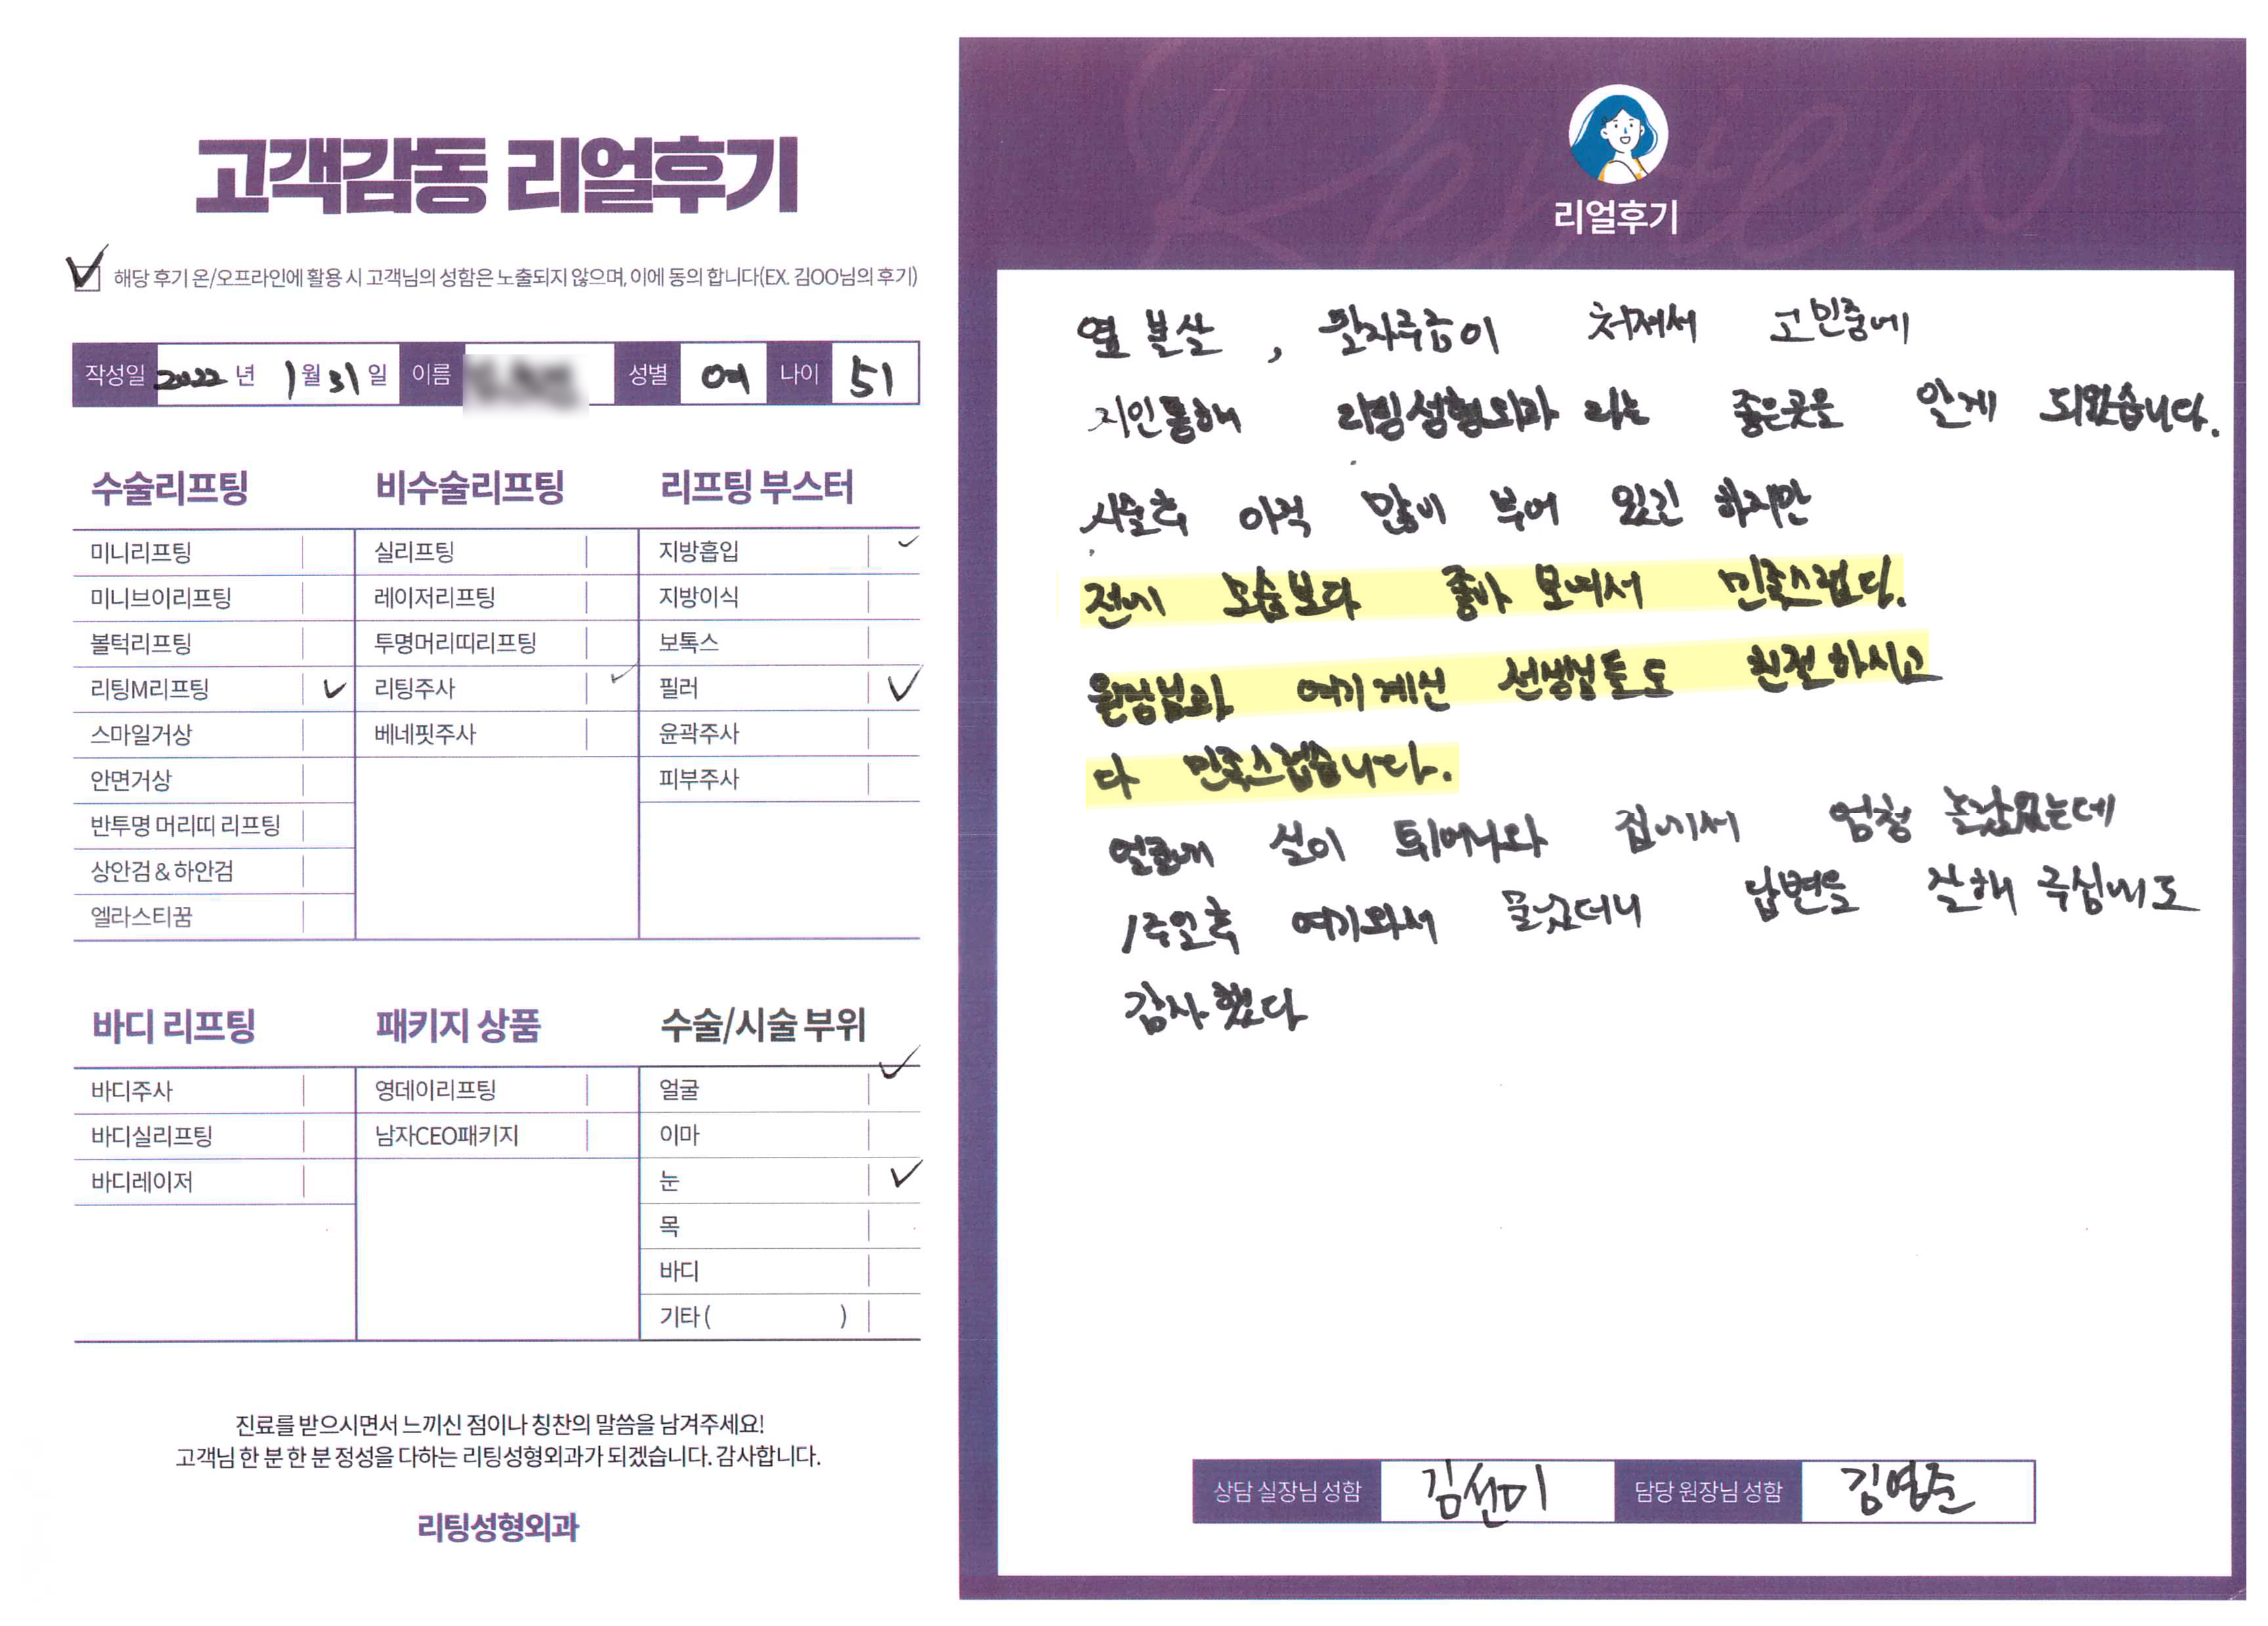 고객감동 리얼후기
해당 후기 온/오프라인에 활용 시 고객님의 성함은 노출되지 않으며, 이에 동의 합니다(EX. 김OO님의 후기)
작성일 2022 년 1 월 31 일 이름 성별 여 나이 51
수술리프팅
미니리프팅
미니브이리프팅
볼턱리프팅
리팅M리프팅
스마일거상
안면거상
반투명 머리띠 리프팅
상안검 & 하안검
엘라스티꿈
비수술리프팅
실리프팅
레이저리프팅
투명머리띠리프팅
리팅주사
베네핏주사
리프팅 부스터
지방흡입
지방이식
보톡스
필러
윤곽주사
피부주사
바디 리프팅
바디주사
바디실리프팅
바디레이저
패키지 상품
영데이리프팅
남자CEO패키지
수술/시술 부위
얼굴
이마
눈
목
바디
기타 ( )
진료를 받으시면서 느끼신 점이나 칭찬의 말씀을 남겨주세요!
고객님 한 분 한 분 정성을 다하는 리팅성형외과가 되겠습니다. 감사합니다.
리팅성형외과
Review
리얼후기
옆 볼살 , 팔자주름이 처져서 고민중에
지인통해 리팅성형외과 라는 좋은곳을 알게 되었습니다.
시술후 아직 많이 부어 있긴 하지만
전에 모습보다 좋아 보여서 만족스럽다.
원장님과 여기계신 선생님들도 친절하시고
다 만족스럽습니다.
얼굴에 실이 튀어나와 집에서 엄청 놀랐었는데
1주일후 여기와서 물었더니 답변을 잘해 주심에도
감사했다
상담 실장님 성함 김선미 담당 원장님 성함 김영준